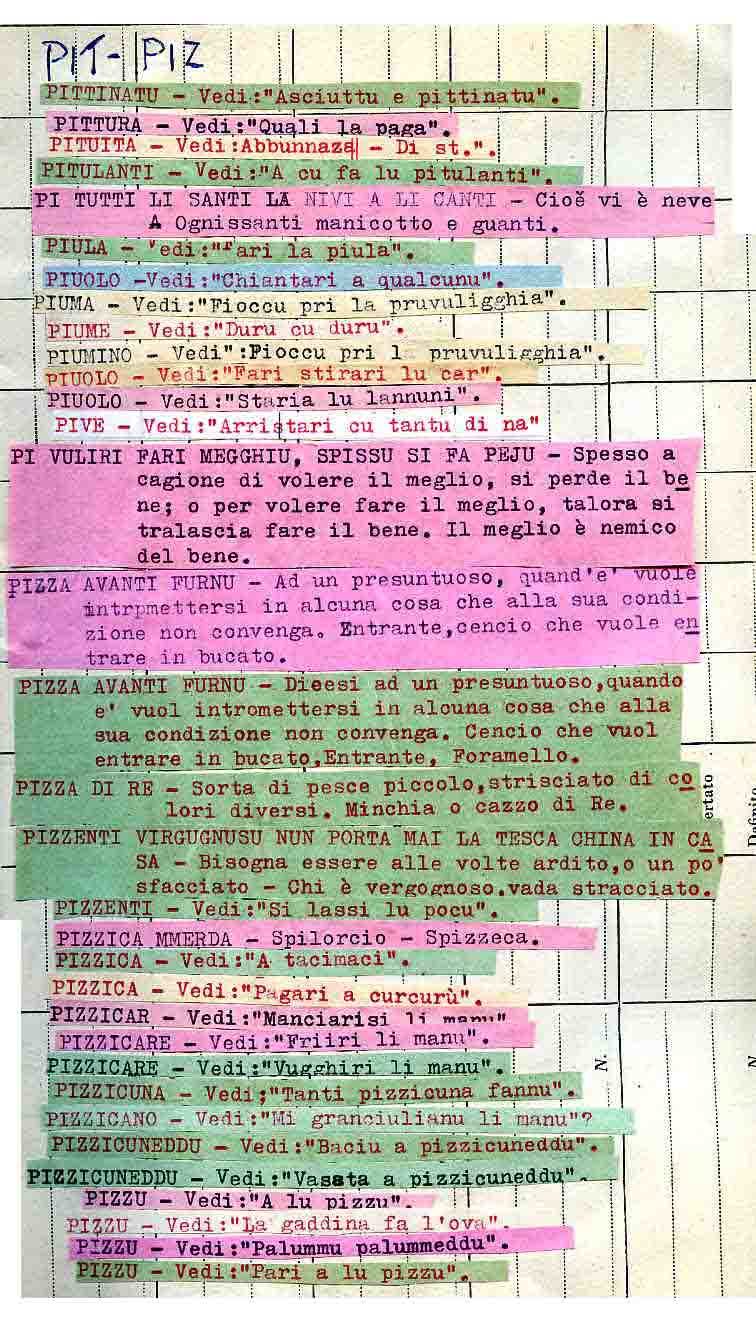 PIT-PIZ
PITTINATU - Vedi:"Asciuttu e pittinatu".
PITTURA - Vedi:"Quali la paga".
PITUITA - Vedi:Abbunnaza - Di st.".
PITULANTI - Vedi:"A cu fa lu pitulanti".
PI TUTTI LI SANTI LA NIVI A LI CANTI - Cioè vi è neve
A Ognissanti manicotto e guanti.
PIULA - Vedi:"Fari la piula".
PIUOLO -Vedi:"Chiantari a qualcunu".
PIUMA - Vedi:"Fioccu pri la pruvuligghia".
PIUME - Vedi:"Duru cu duru".
PIUMINO - Vedi":Fioccu pri l pruvuligghia".
PIUOLO - Vedi:"Fari stirari lu car".
PIUOLO - Vedi:"Staria lu lannuni".
PIVE - Vedi:"Arristari cu tantu di na"
PI VULIRI FARI MEGGHIU, SPISSU SI FA PEJU - Spesso a
cagione di volere il meglio, si perde il be
ne; o per volere fare il meglio, talora si
tralascia fare il bene. Il meglio è nemico
del bene.
PIZZA AVANTI FURNU - Ad un presuntuoso, quand'e' vuole
intrpmettersi in alcuna cosa che alla sua condi-
zione non convenga. Entrante,cencio che vuole en
trare in bucato.
PIZZA AVANTI FURNU - Dicesi ad un presuntuoso,quando
e' vuol intromettersi in alcuna cosa che alla
sua condizione non convenga. Cencio che vuol
entrare in bucato,Entrante, Foramello.
PIZZA DI RE - Sorta di pesce piccolo,strisciato di co
lori diversi. Minchia o cazzo di Re.
ertato
Definito
PIZZENTI VIRGUGNUSU NUN PORTA MAI LA TESCA CHINA IN CA
SA - Bisogna essere alle volte ardito,o un po'
sfacciato - Chi è vergognoso,vada stracciato.
PIZZENTI - Vedi:"Si lassi lu pocu".
PIZZICA MMERDA - Spilorcio - Spizzeca.
PIZZICA - Vedi:"A tacimaci".
PIZZICA - Vedi:"Pagari a curcurù".
PIZZICAR - Vedi:"Manciarisi li manu"
PIZZICARE - Vedi:"Friiri li manu".
PIZZICARE - Vedi:"Vugghiri li manu".
N.
N
PIZZICUNA - Vedi;"Tanti pizzicuna fannu".
PIZZICANO - Vedi:"Mi granciulianu li manu"?
PIZZICUNEDDU - Vedi:"Baciu a pizzicuneddu".
PIZZICUNEDDU - Vedi:"Vasata a pizzicuneddu".
PIZZU - Vedi:"A lu pizzu".
PIZZU - Vedi:"La gaddina fa l'ova".
PIZZU - Vedi:"Palummu palummeddu".
PIZZU - Vedi:"Pari a lu pizzu".